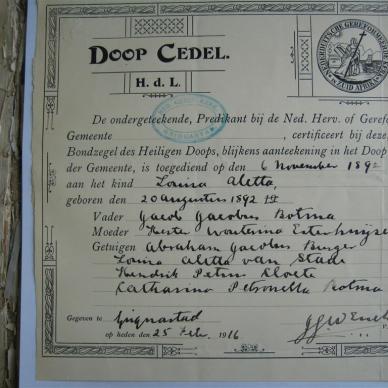 DOOP CEDEL.
H. d. L.
NEDERDUITSCHE GEREFORMEERDE
IN ZUID AFRIKA
De ondergeteekende, Predikant bij de Ned. Herv. of Geref
Gemeente , certificeert bij deze,
Bondzegel des Heiligen Doops, blijkens aanteekening in het Doop
der Gemeente, is toegediend op den 6 November 189
aan het kind Louisa Aletta,
geboren den 20 augustus 1892
Vader Jacob Jacobus Botma
Moeder Hester Wouterina Esterhuijse
Getuigen Abraham Jacobus Burger
Louisa Aletta van Stade
Hendrik Petrus Cloete
Catharina Petronella Botma
Gegeven te
op heden den 25 Feb. 1916